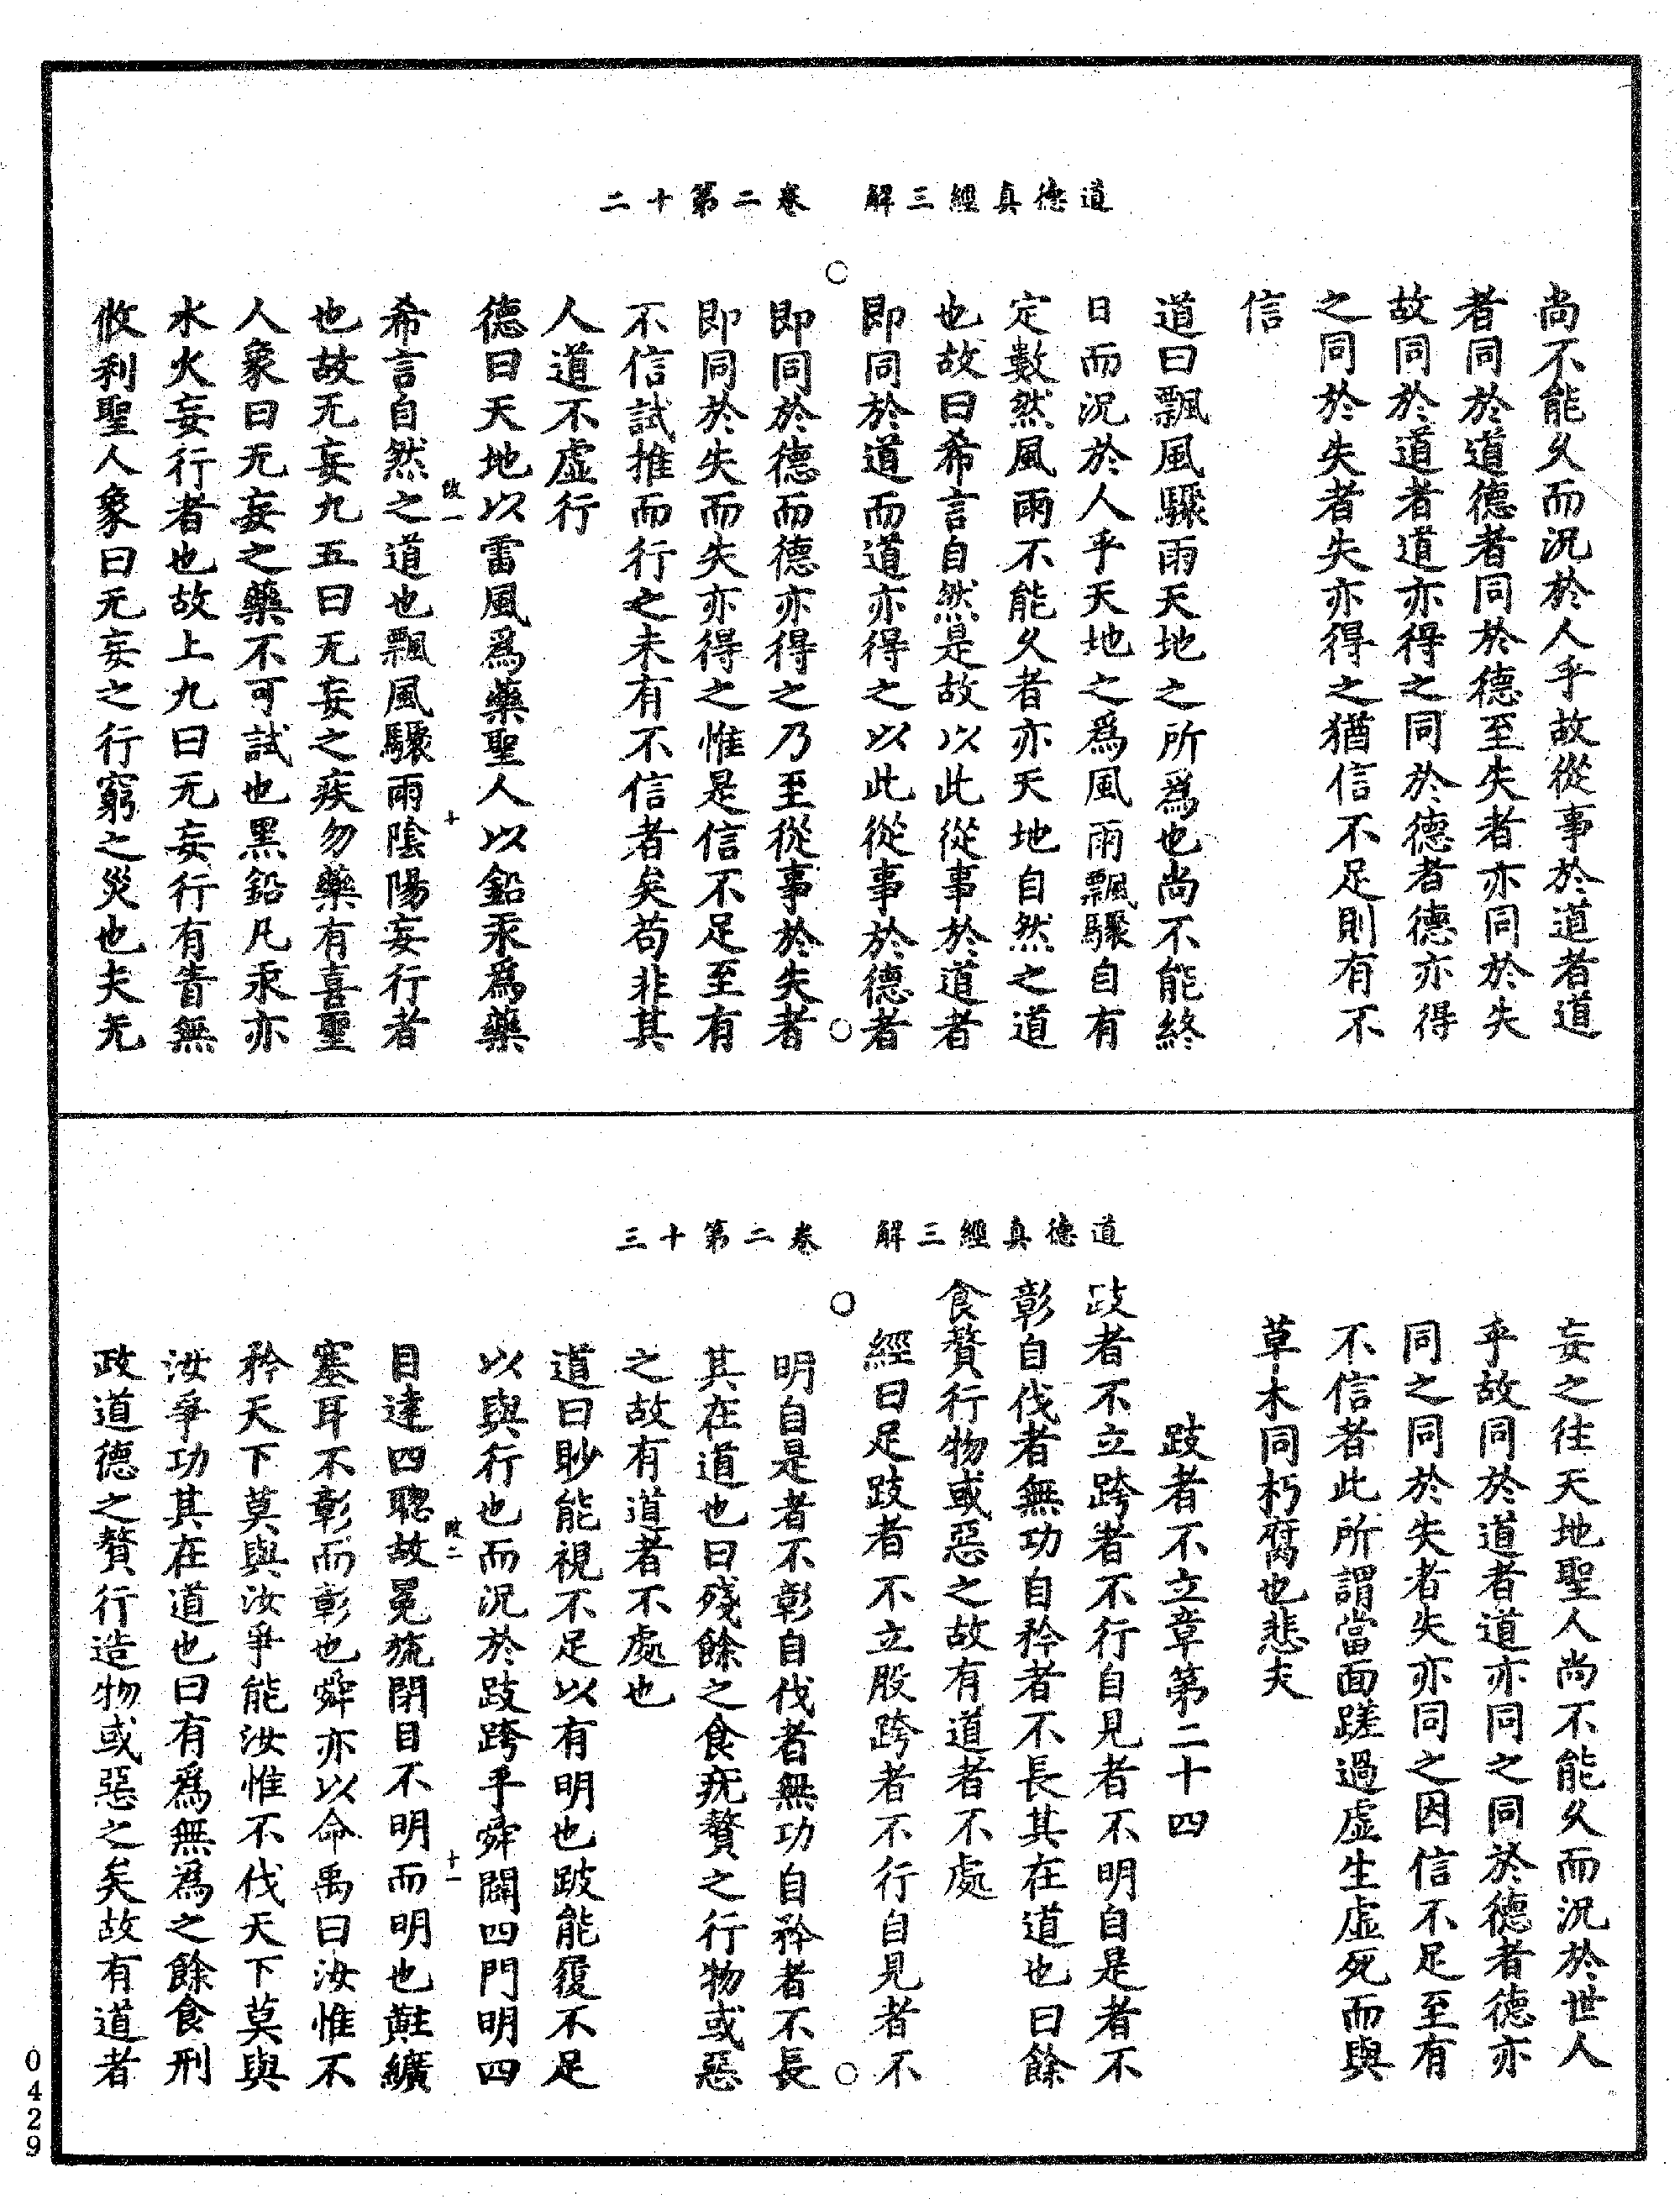 道德真經三解　卷二第十二
尚不能久而況於人乎故從事於道者道
者同於道德者同於德至失者亦同於失
故同於道者道亦得之同於德者德亦得
之同於失者失亦得之猶信不足則有不
信
道曰飄風驟雨天地之所爲也尚不能終
日而況於人乎天地之爲風雨飄驟自有
定數然風雨不能久者亦天地自然之道
也故曰希言自然是故以此從事於道者
即同於道而道亦得之以此從事於德者
即同於德而德亦得之乃至從事於失者
即同於失而失亦得之惟是信不足至有
不信試推而行之未有不信者矣苟非其
人道不虛行
德曰天地以雷風爲藥聖人以鉛汞爲藥
改一　十
希言自然之道也飄風驟雨陰陽妄行者
也故无妄九五曰无妄之疾勿藥有喜聖
人象曰无妄之藥不可試也黑鉛凡汞亦
水火妄行者也故上九曰无妄行有眚無
攸利聖人象曰无妄之行窮之災也夫无
道德真經三解　卷二第十三
妄之往天地聖人尚不能久而況於世人
乎故同於道者道亦同之同於德者德亦
同之同於失者失亦同之因信不足至有
不信者此所謂當面蹉過虛生虛死而與
草木同朽腐也悲夫
跂者不立章第二十四
跂者不立跨者不行自見者不明自是者不
彰自伐者無功自矜者不長其在道也曰餘
食贅行物或惡之故有道者不處
經曰足跂者不立股跨者不行自見者不
明自是者不彰自伐者無功自矜者不長
其在道也曰殘餘之食疣贅之行物或惡
之故有道者不處也
道曰眇能視不足以有明也跛能履不足
以與行也而況於跂跨乎舜闢四門明四
改二　十一
目達四聰故冕旒閉目不明而明也黈纊
塞耳不彰而彰也舜亦以命禹曰汝惟不
矜天下莫與汝爭能汝惟不伐天下莫與
汝爭功其在道也曰有爲無爲之餘食刑
政道德之贅行造物或惡之矣故有道者
0429